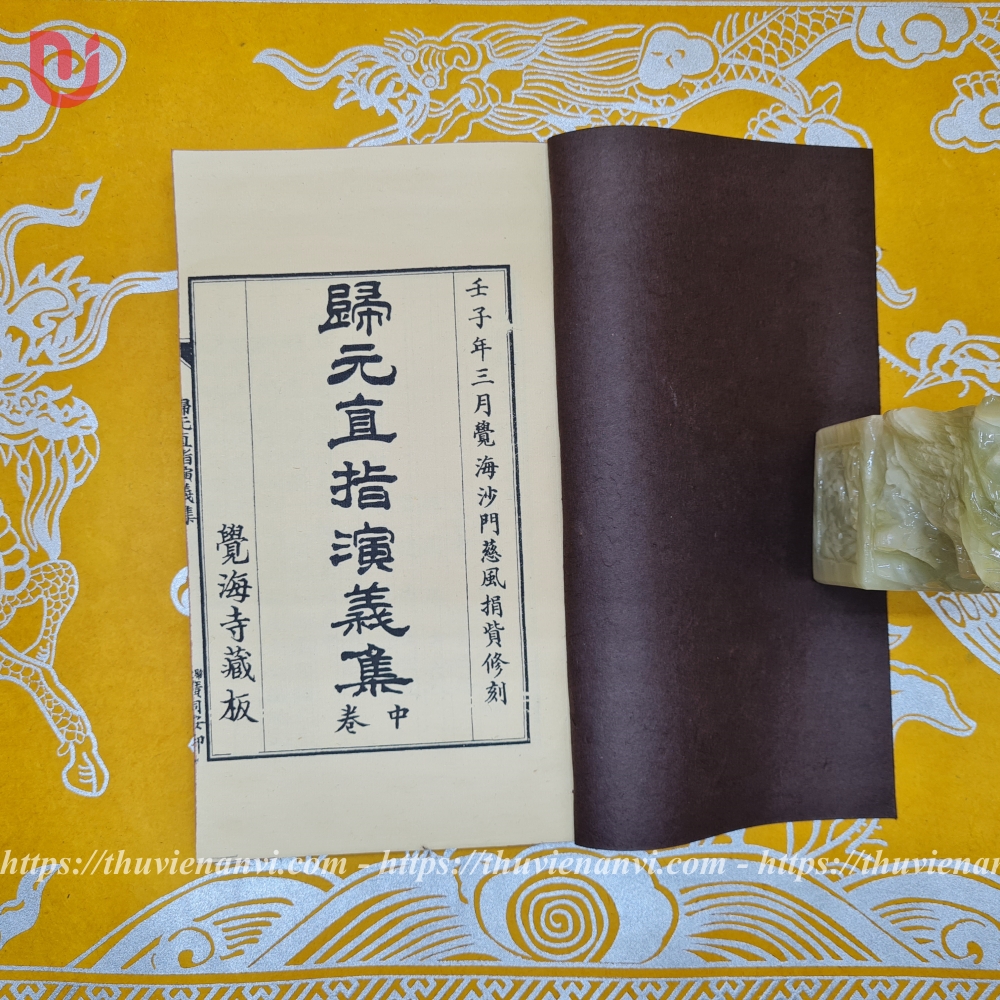 壬子年三月覺海沙門慈風捐貲修刻
歸元直指演義集
中卷
覺海寺藏板
歸元直指演義集
https://thuvienanvi.com - https://thuvienanvi.com - https://thuvienan